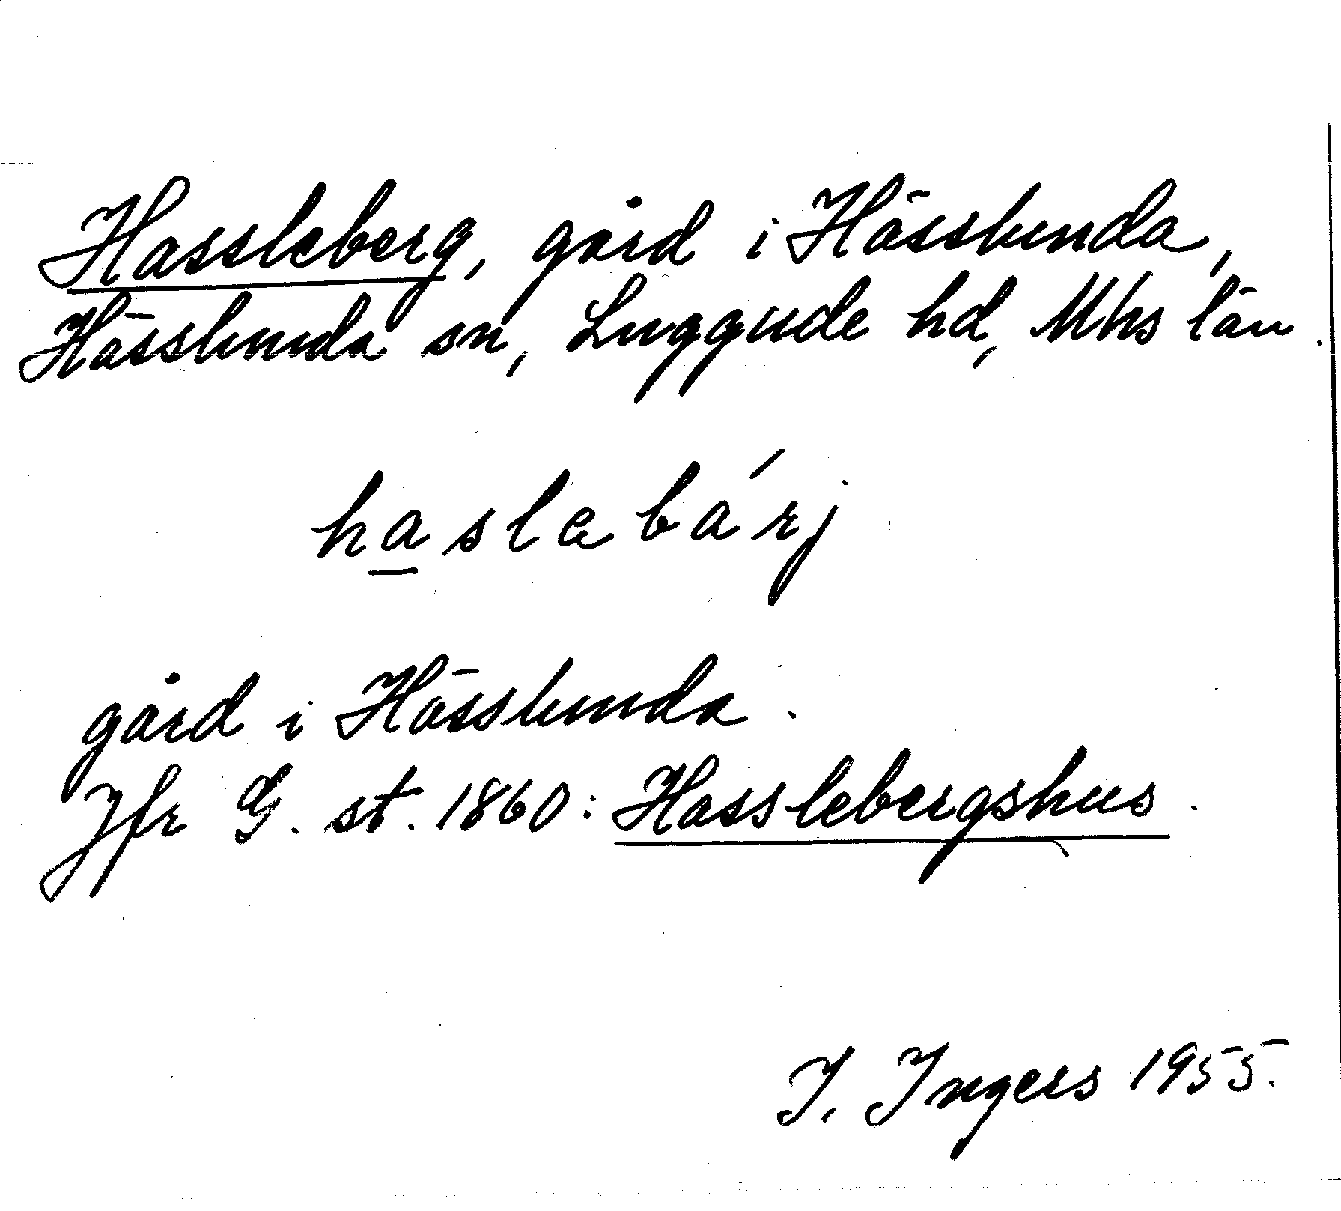 Hassleberg, gård i Hässlunda,
Hässlunda sn, Luggude hd, Mhs län.
haslebárj
gård i Hässlunda.
Jfr G. st. 1860: Hasslebergshus.
I. Ingers 1955.